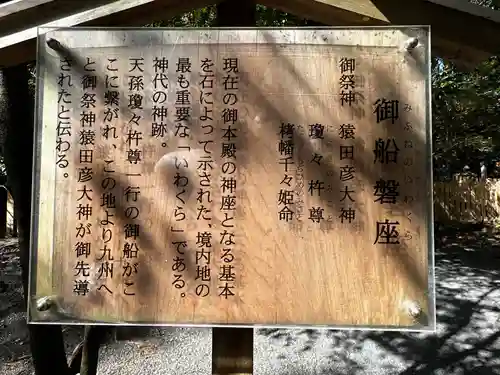 御船磐座
みふねのいわくら
御祭神 猿田彦大神
瓊々杵尊
栲幡千々姫命
現在の御本殿の神座となる基本
を石によって示された、境内地の
最も重要な「いわくら」である。
神代の神跡。
天孫瓊々杵尊一行の御船がこ
こに繋がれ、この地より九州へ
と御祭神猿田彦大神が御先導
された と伝わる。